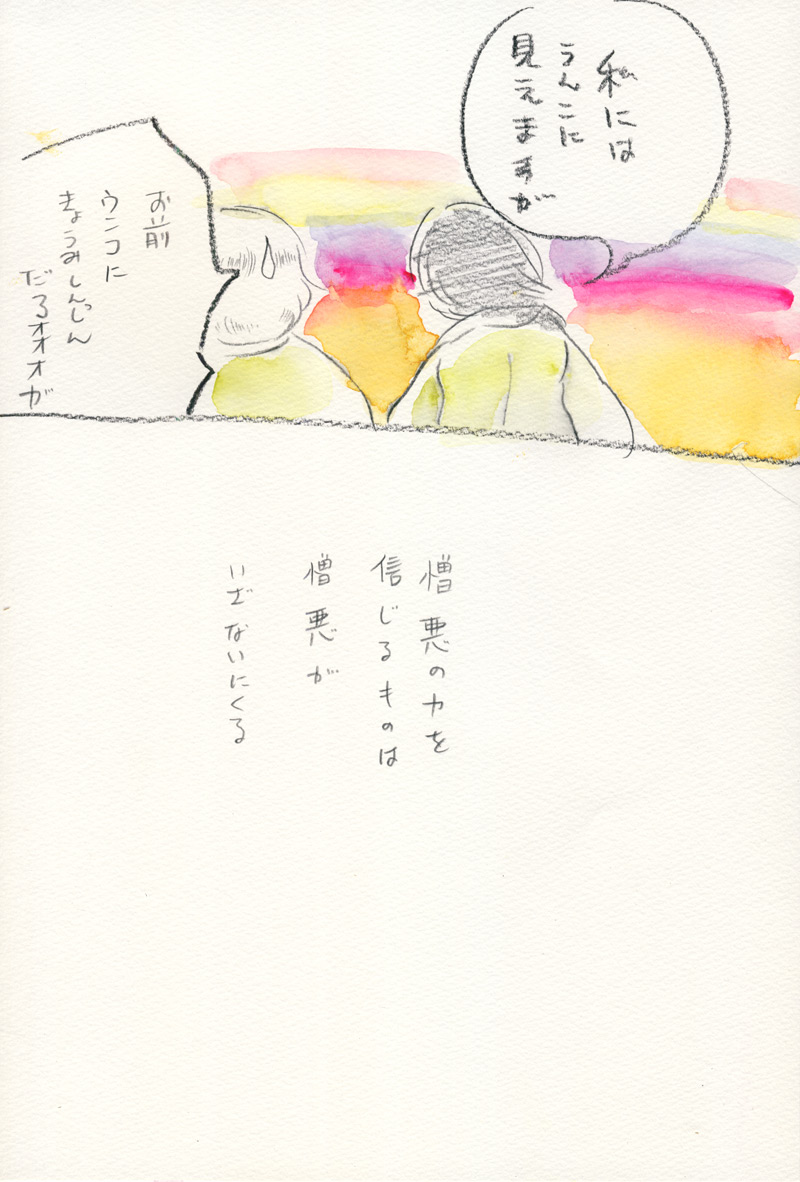 私には
うんこに
見えますが
お前
ウンコに
きょうみしんしん
だろオオオが
憎悪の力を
信じるものは
憎悪が
いざないにくる